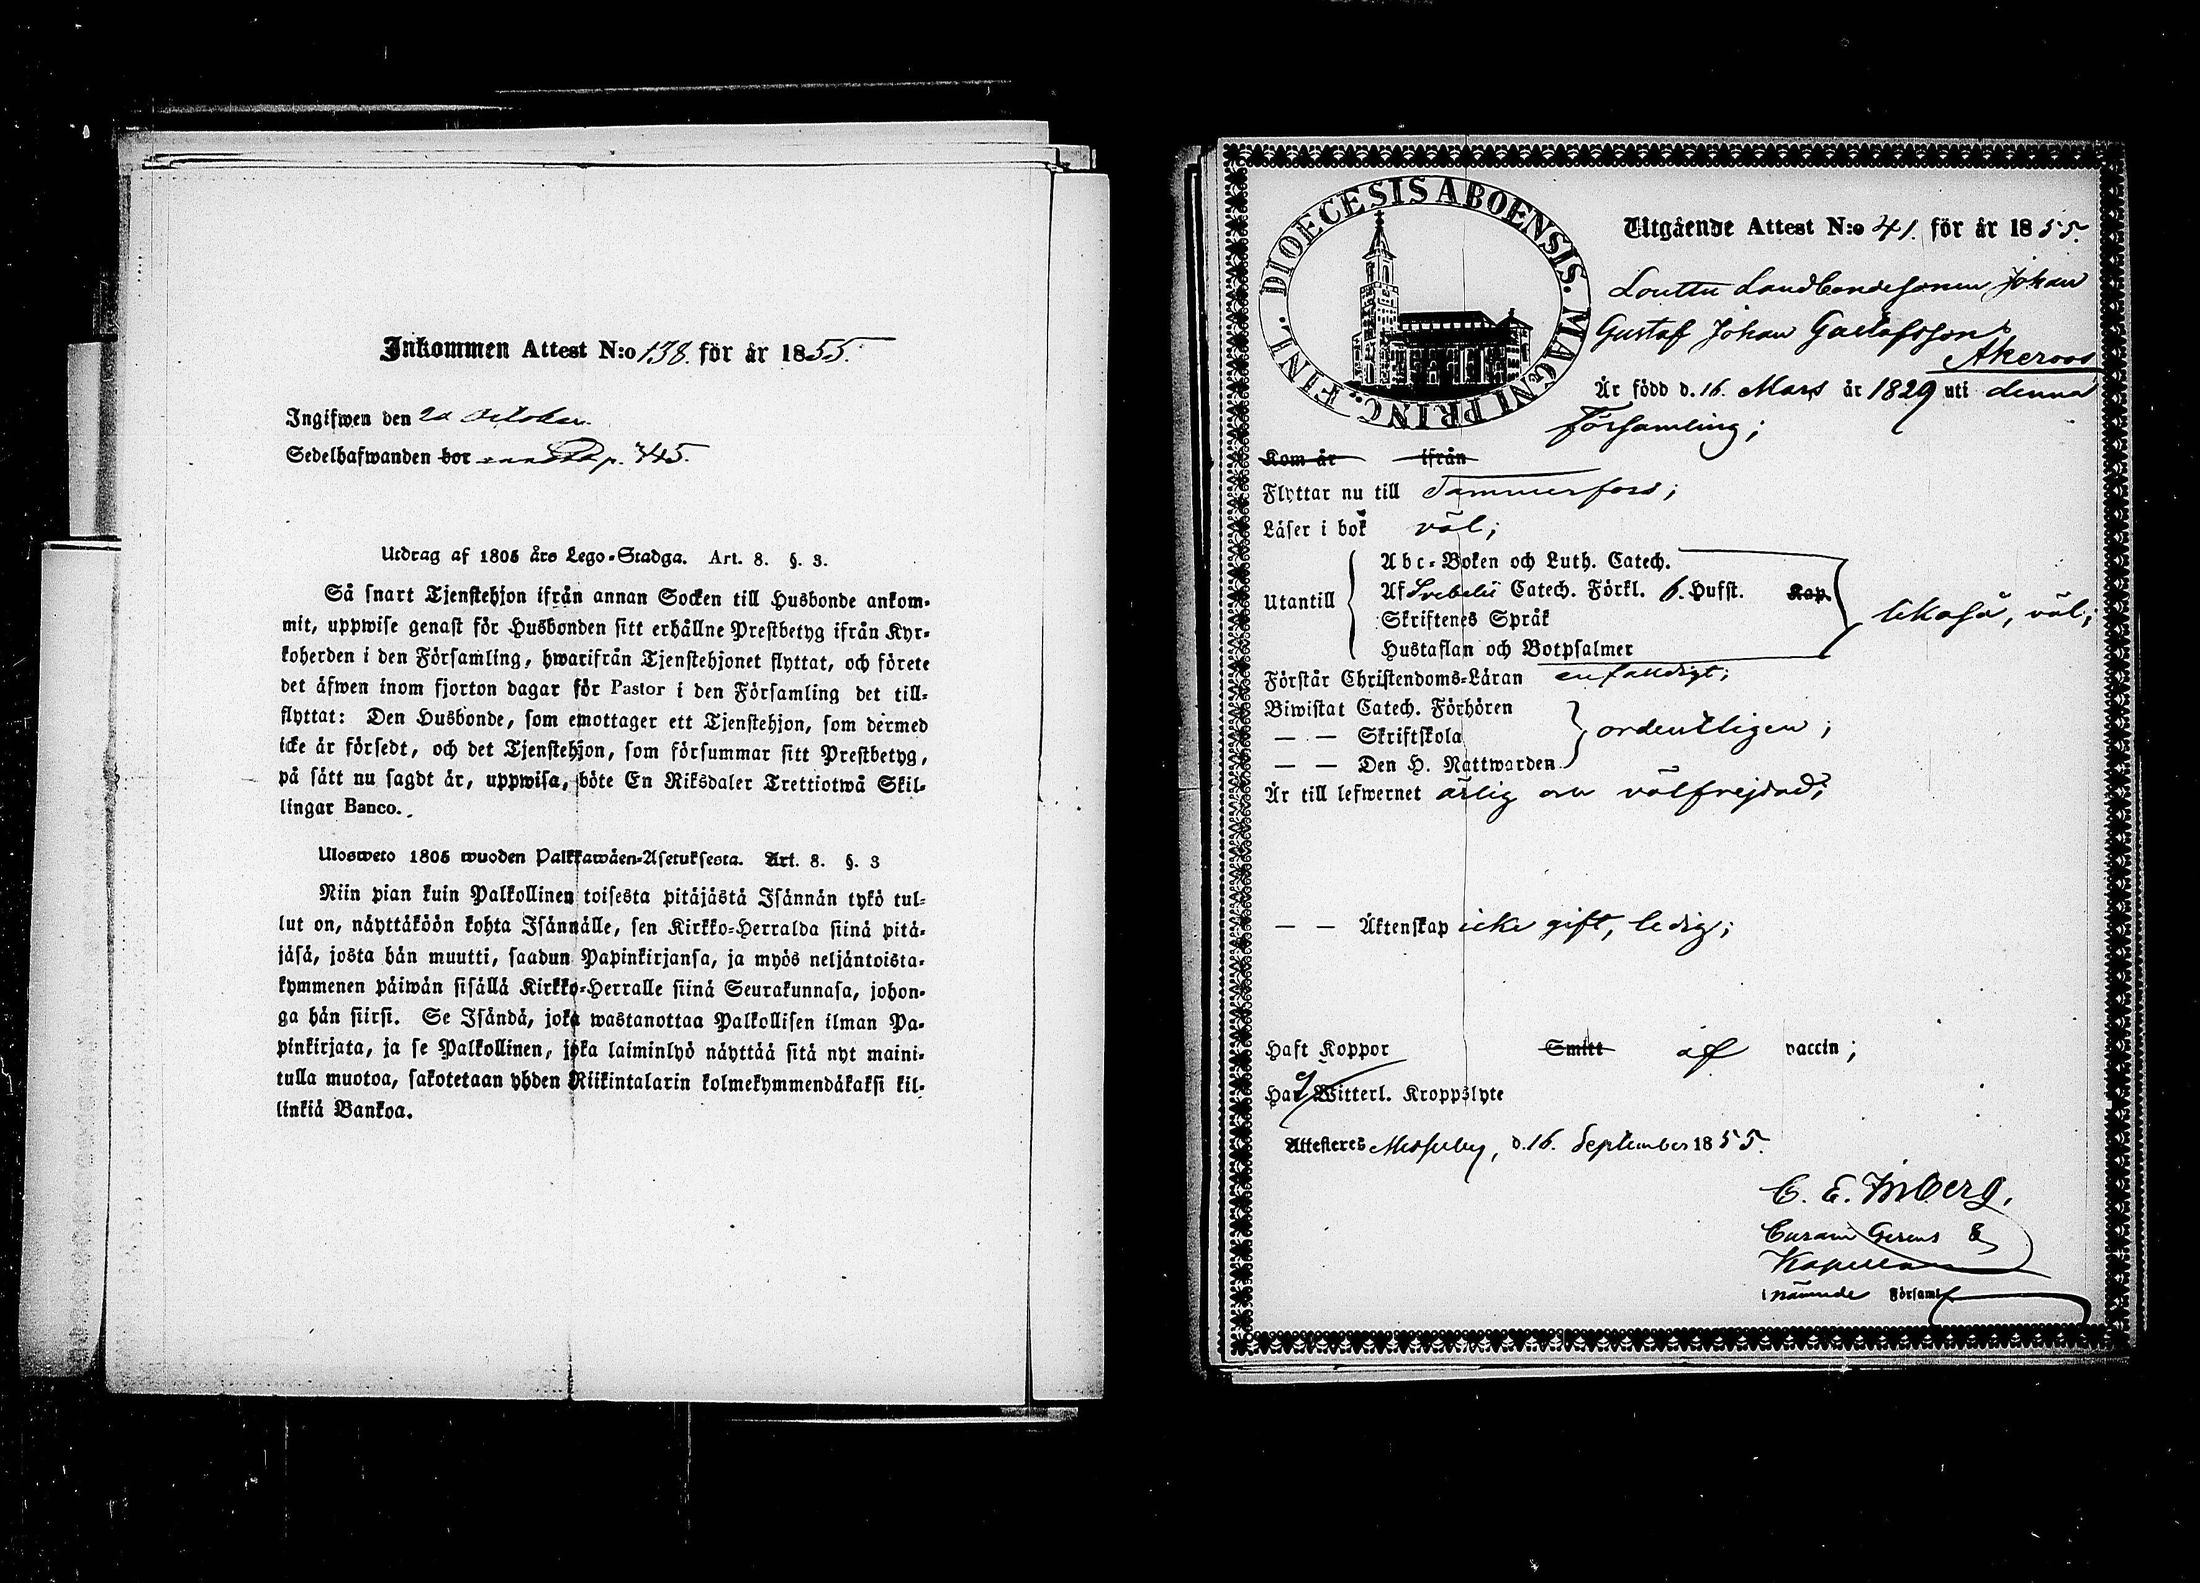 Inkommen Attest N:o 138. för år 1855.
Ingifwen den 2d October.
Sedelhafwanden bor p. 445.
Utdrag af 1805 års Lego-Stadga. Art. 8. §. 3.
Så snart Tjenstehjon ifrån annan Socken till Husbonde ankom-
mit, uppwise genast för Husbonden sitt erhållne Prestbetyg ifrån Kyr-
koherden i den Församling, hwarifrån Tjenstehjonet flyttat, och förete
det äfwen inom fjorton dagar för Pastor i den Församling det till-
flyttat: Den Husbonde, som emottager ett Tjenstehjon, som dermed
icke är försedt, och det Tjenstehjon, som försummar sitt Prestbetyg,
på sätt nu sagdt är, uppwisa, böte En Riksdaler Trettiotwå Skil-
lingar Banco.
Ulosweto 1805 wuoden Palkkawäen-Asetuksesta. Art. 8. §. 3
Niin pian kuin Palkollinen toisesta pitäjästä Isännän tykö tul-
lut on, näyttäköön kohta Isännälle, sen Kirkko-Herralda siinä pitä-
jäsä, josta hän muutti, saadun Papinkirjansa, ja myös neljäntoista-
kymmenen päiwän sisällä Kirkko-Herralle siinä Seurakunnasa, johon-
ga hän siirsi. Se Isändä, joka wastanottaa Palkollisen ilman Pa-
pinkirjata, ja se Palkollinen, joka laiminlyö näyttää sitä nyt maini-
tulla muotoa, sakotetaan yhden Riikintalarin kolmekymmendäkaksi kil-
linkiä Bankoa.
DIOECESIS ABOENSIS. MAGNI PRINC. FINL.
Utgående Attest N:o 41. för år 1855.
Louttu Landbondesonen Johan
Gustaf Johan Gustafsson
Åkeroos
Är född d. 16. Mars år 1829 uti denna
Församling;
Kom år ifrån
Flyttar nu till Tammerfors;
Läser i bok väl;
Utantill
Abc-Boken och Luth. Catech.
Af Svebelii Catech. Förkl. 6. Hufst. Kap.
Skriftenes Språk
Hustaflan och Botpsalmer
likaså, väl;
Förstår Christendoms-Läran enfaldigt;
Biwistat Catech. Förhören
— — Skriftskola
— — Den H. Nattwarden
ordentligen;
Är till lefwernet ärlig och välfrejdad;
— — Äktenskap icke gift, ledig;
Haft Koppor Smitt af vaccin;
Har Witterl. Kroppslyte
Attesteres Messuby, d. 16. September 1855.
C. E.
Curam Gerens &
Kapellan
i nämnde Församl.